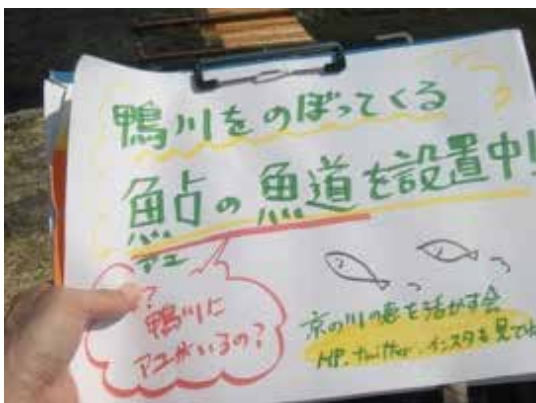 鴨川をのぼってくる
鮎の魚道を設置中!
アユ
?
鴨川に
アユがいるの?
京の川の恵を活かす会
HP.twitter.インスタも見てね